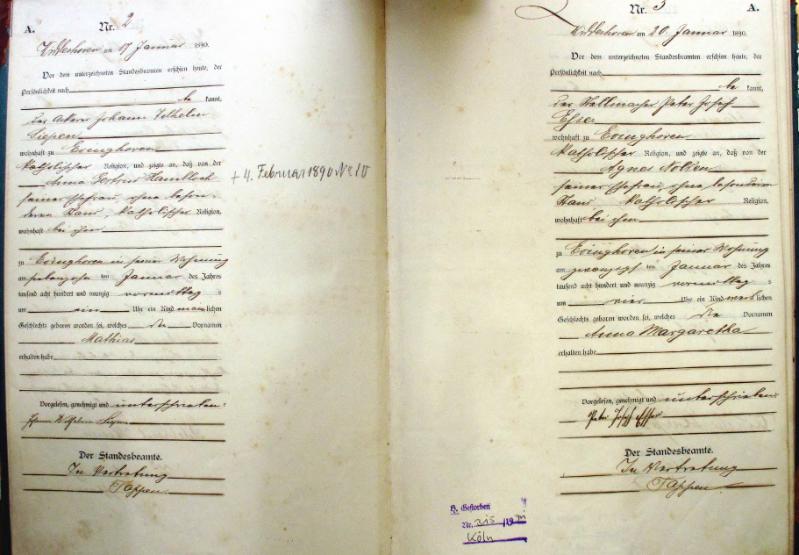 A.
Nr. 2
am 17 Januar 1890.
Vor dem unterzeichneten Standesbeamten erschien heute, der
Persönlichkeit nach
be kannt,
der Ackerer Johann Wilhelm
Siepen
wohnhaft zu Evinghoven
katholischer Religion, und zeigte an, daß von der
Anna Gertrud
seiner Ehefrau, ohne beson-
deren Stand, katholischer Religion,
wohnhaft bei ihm
zu Evinghoven in seiner Wohnung
am Januar des Jahres
tausend acht hundert und neunzig vormittags
um ein Uhr ein Kind männlichen
Geschlechts geboren worden sei, welches die Vornamen
Mathias
erhalten habe
Vorgelesen, genehmigt und unterschrieben:
Johann Wilhelm Siepen
Der Standesbeamte.
In Vertretung
Tappen.
+ 4. Februar 1890 Nr. 10
Nr. 3
A.
am 20. Januar 1890.
Vor dem unterzeichneten Standesbeamten erschien heute, der
Persönlichkeit nach
be kannt,
der Stellmacher Peter Josef
Esser
wohnhaft zu Evinghoven
katholischer Religion, und zeigte an, daß von der
Agnes Nolden
seiner Ehefrau, ohne besonderen
Stand katholischer Religion,
wohnhaft bei ihm
zu Evinghoven in seiner Wohnung
am zwanzigsten Januar des Jahres
tausend acht hundert und neunzig vormittags
um vier Uhr ein Kind weiblichen
Geschlechts geboren worden sei, welches die Vornamen
Anna Margaretha
erhalten habe
Vorgelesen, genehmigt und unterschrieben:
Peter Josef Esser
Der Standesbeamte.
In Vertretung
Tappen.
H. Gestorben
Nr. 215
Köln